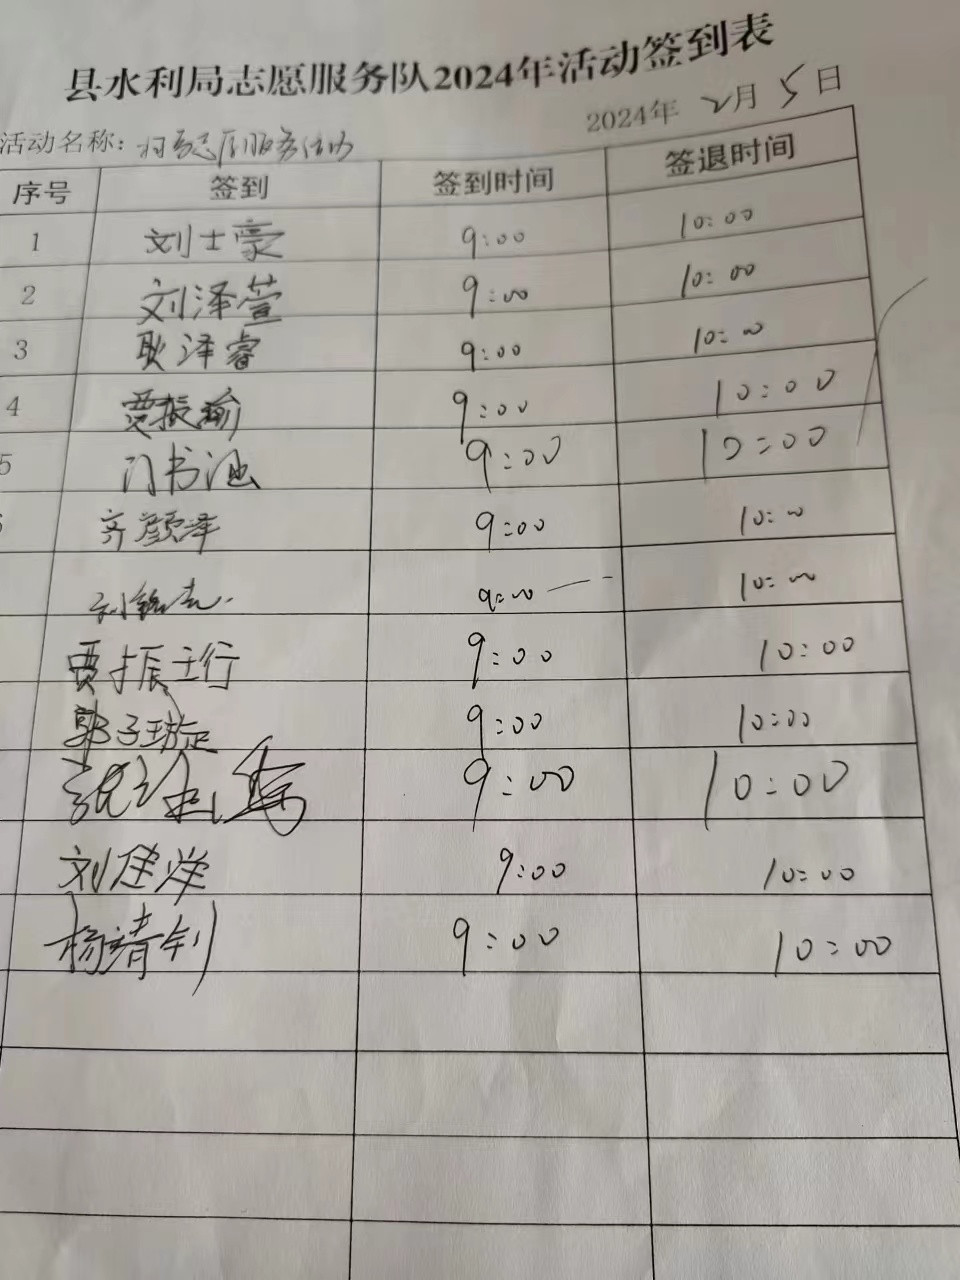 县水利局志愿服务队2024年活动签到表
2024年 2月 5日
活动名称: 志愿服务活动
序号 签到 签到时间 签退时间
1 刘士豪 9:00 10:00
2 刘泽萱 9:00 10:00
3 耿泽睿 9:00 10:00
4 贾振瑜 9:00 10:00
5 门书涵 9:00 10:00
齐颜泽 9:00 10:00
9:00 10:00
贾振珩 9:00 10:00
郭子璇 9:00 10:00
9:00 10:00
刘建洋 9:00 10:00
杨靖钊 9:00 10:00